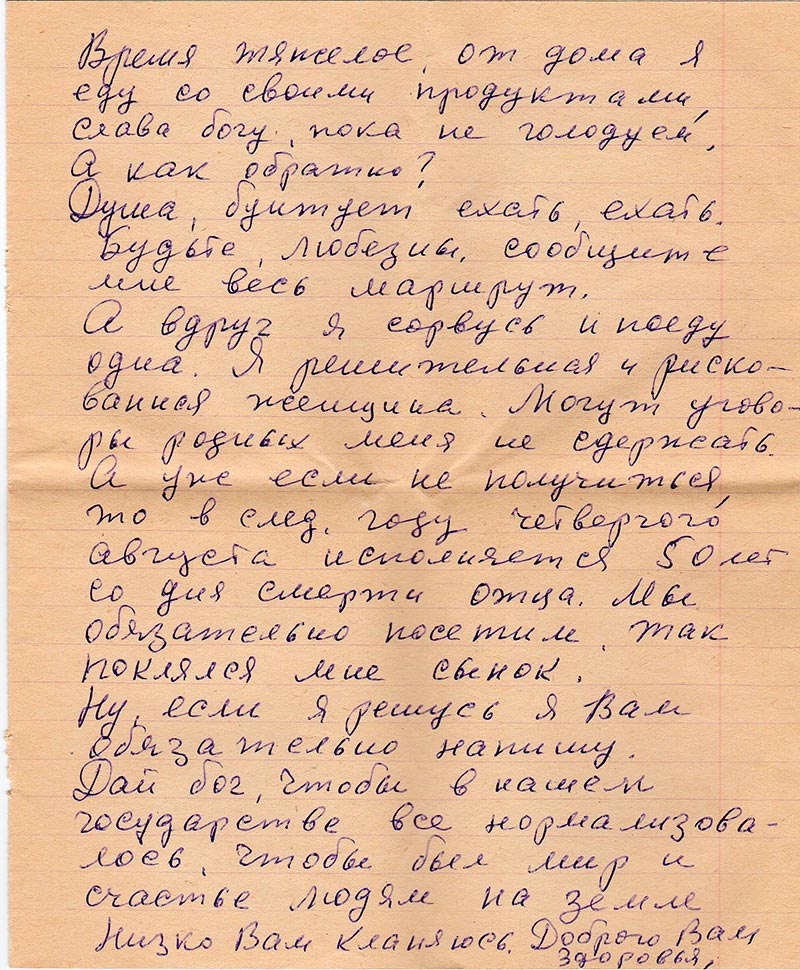 Время тяжелое, от дома я
еду со своими продуктами,
слава богу, пока не голодуем,
А как обратно?
Душа, бунтует ехать, ехать.
Будьте, любезны, сообщите
мне весь маршрут.
А вдруг я сорвусь и поеду
одна. Я решительная и риско-
ванная женщина. Могут угово-
ры родных меня не сдержать.
А уже если не получиться,
то в след. году четвертого
августа исполняется 50 лет
со дня смерти отца. Мы
обязательно посетим, так
поклялся мне сынок.
Ну, если я решусь я Вам
обязательно напишу.
Дай бог, чтобы в нашем
государстве все нормализова-
лось, чтобы был мир и
счастье людям на земле
Низко Вам кланяюсь. Доброго Вам
здоровья,